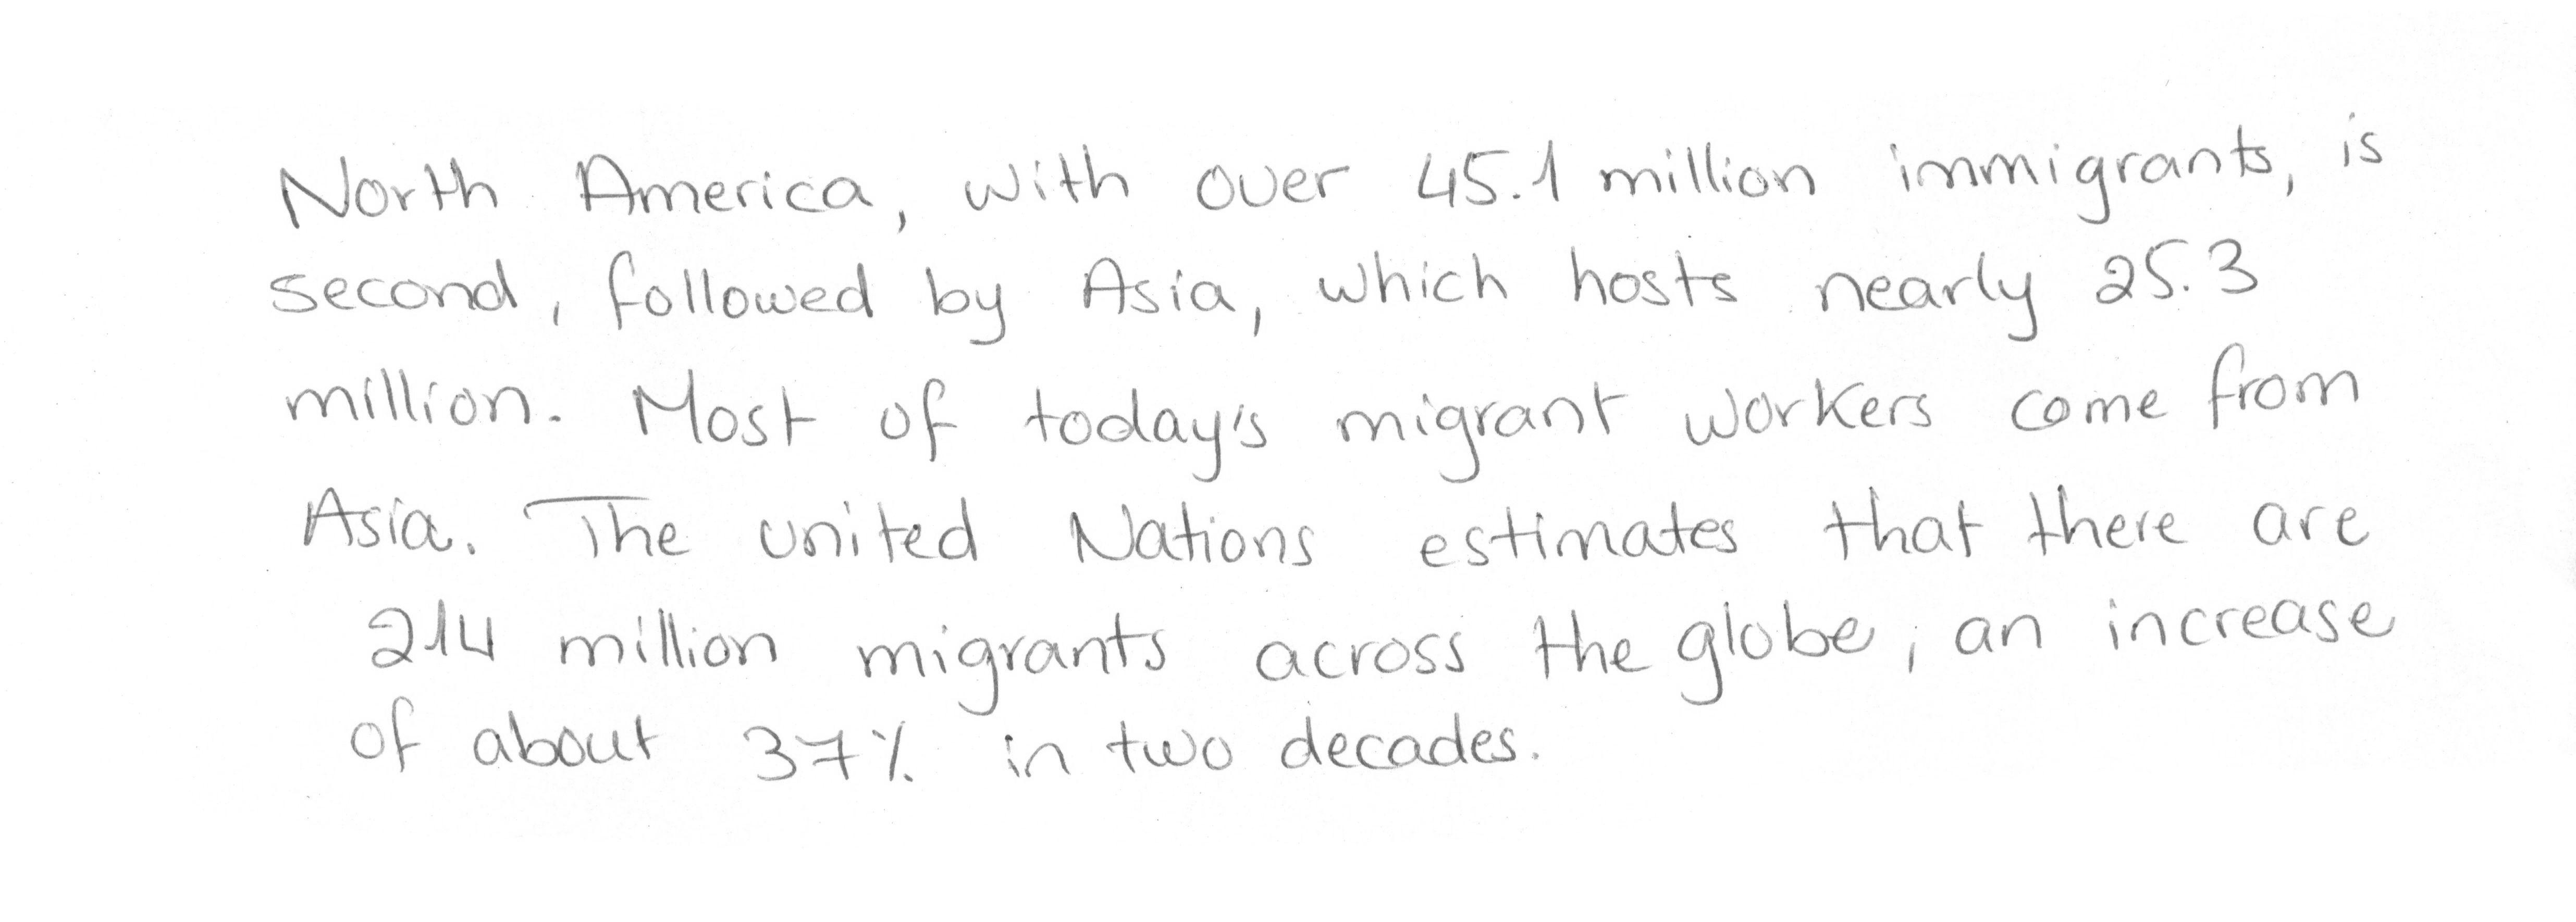 North America, with over 45.1 million immigrants, is
second, followed by Asia, which hosts nearly 25.3
million. Most of today's migrant workers come from
Asia. The united Nations estimates that there are
214 million migrants across the globe, an increase
of about 37% in two decades.